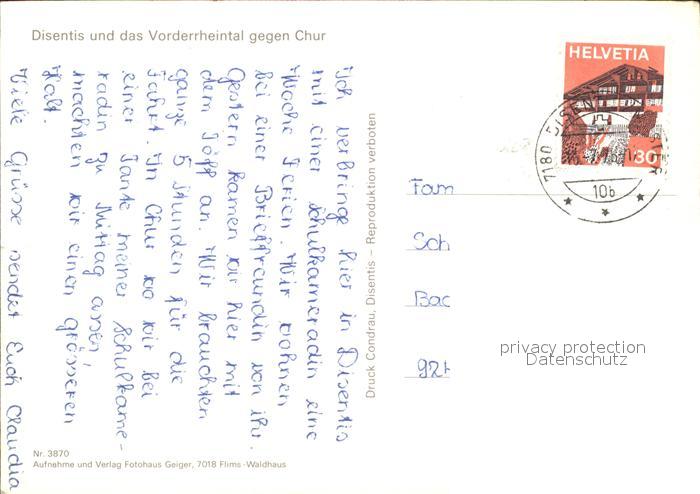 Disentis und das Vorderrheintal gegen Chur
Ich verbringe hier in Disentis
mit einer Schulkameradin eine
Woche Ferien. Wir wohnen
bei einer Brieffreundin von ihr.
Gestern kamen wir hier mit
dem Töff an. Wir brauchten
ganze 5 Stunden für die
Fahrt. In Chur wo wir bei
einer Tante meiner Schulkame-
radin zu Mittag assen,
machten wir einen grösseren
Halt.
Viele Grüsse sendet Euch Claudia
Druck Condrau, Disentis – Reproduktion verboten
HELVETIA
30
7180 DISENTIS
10b
Fam
Sch
Bac
privacy protection
Datenschutz
Nr. 3870
Aufnahme und Verlag Fotohaus Geiger, 7018 Flims-Waldhaus